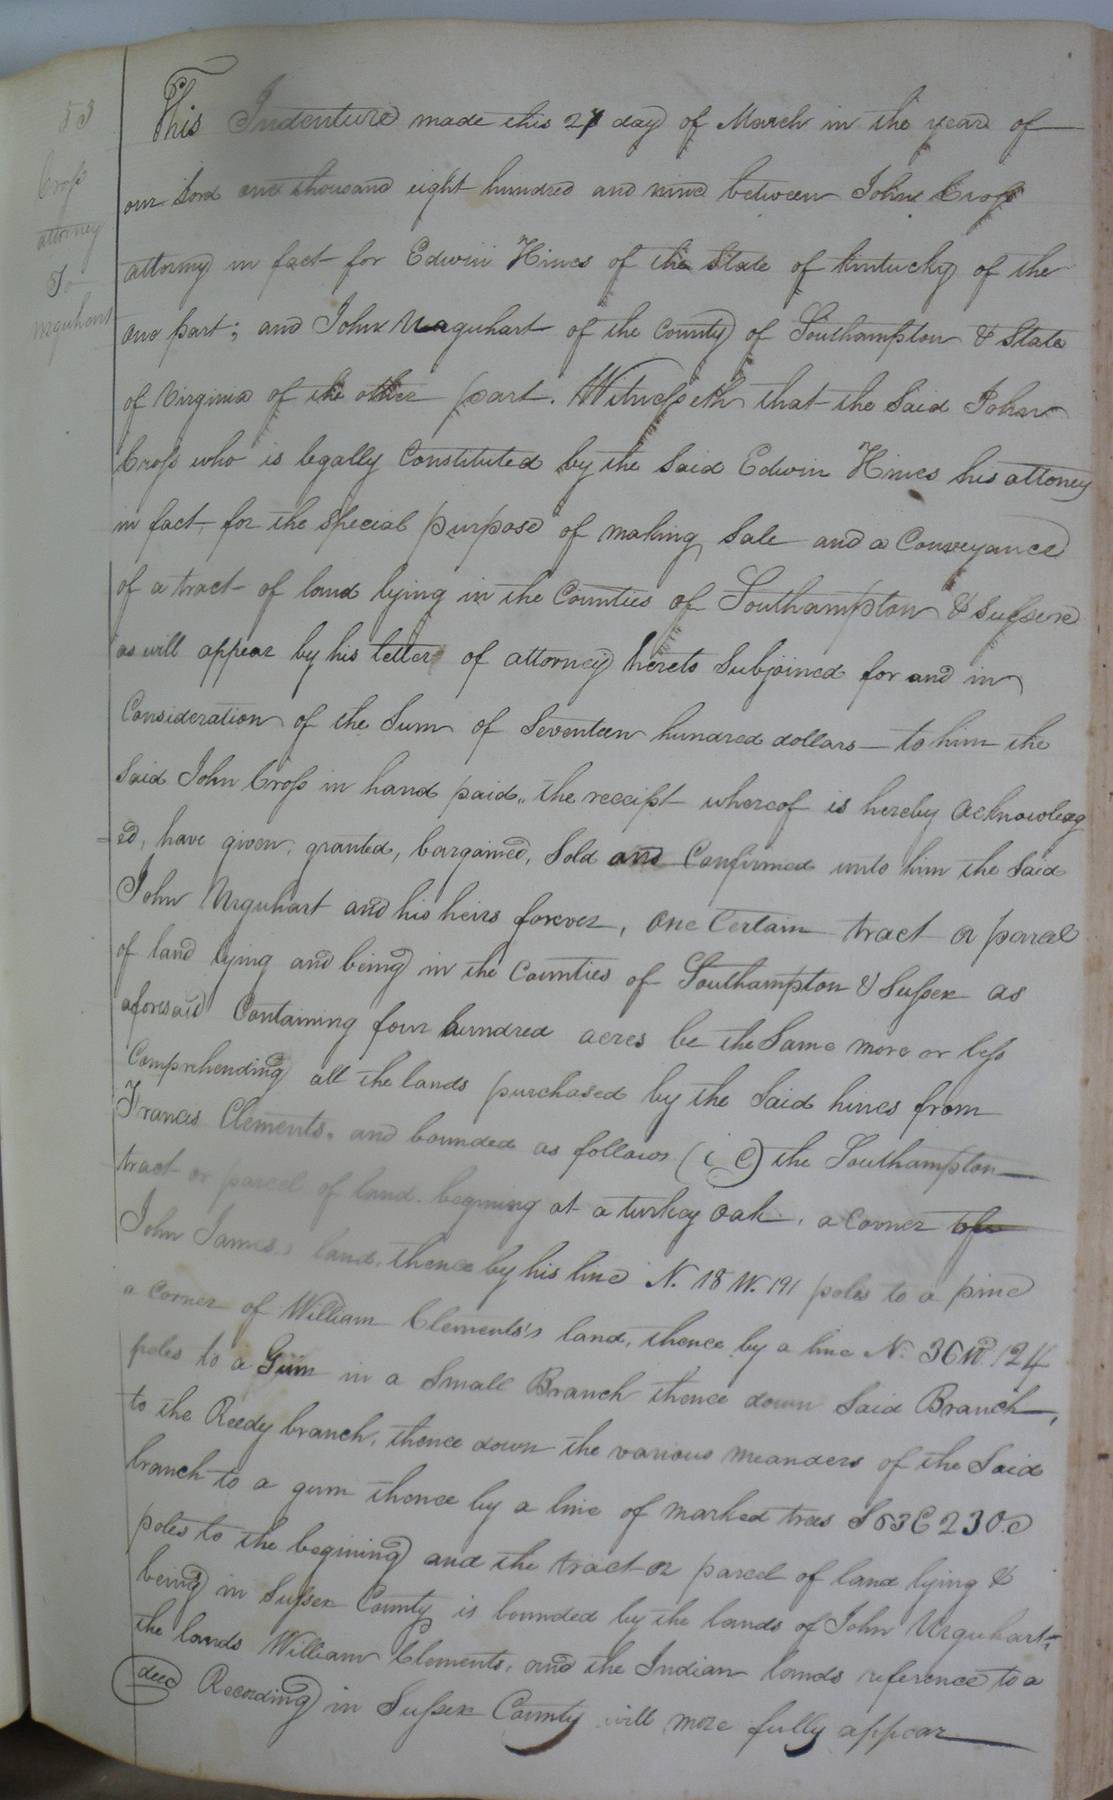 53
Cross
attorney
To
Urquhart
This Indenture made this 27 day of March in the year of
our Lord one thousand eight hundred and nine between John Cross
attorny in fact for Edwin Hines of the State of Kintucky of the
one part; and John Uaquhart of the County of Southampton & State
of Virginia of the other part. Witnesseth that the Said John
Cross who is legally Constituted by the Said Edwin Hines his attoney
in fact for the Special purpose of making Sale and a Conveyance
of a tract of land lying in the Counties of Southampton & Sussex
as will appear by his letter of attorney hereto Subjoined for and in
Consideration of the Sum of Seventeen hundred dollars to him the
Said John Cross in hand paid, the receipt whereof is hereby acknowledg
=ed, have given, granted, bargained, Sold and Confirmed unto him the Said
John Urquhart and his heirs forever, one Certain tract or parcel
of land lying and being in the Counties of Southampton & Sussex as
aforesaid Containing four hundred acres be the Same more or less
Comprehending all the lands purchased by the Said hines from
Francis Clements. and bounded as follows (i e) the Southampton
tract or parcel of land begining at a turkey oak, a corner of
John James's land, thence by his line N. 18 W. 191 poles to a pine
a corner of William Clements's land, thence by a line N. 36 W. 124
poles to a Gum in a Small Branch thence down Said Branch,
to the Reedy branch, thence down the various meanders of the Said
branch to a gum thence by a line of marked trees S 63 E 230
poles to the begining and the tract or parcel of land lying &
being in Sussex County is bounded by the lands of John Urquhart,
the lands William Clements, and the Indian lands reference to a
deed Recording in Sussex County will more fully appear